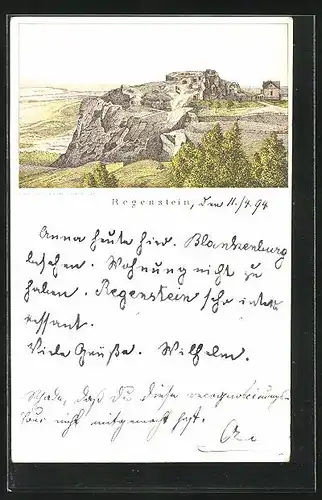 Regenstein, den 11./4. 94
Anna heute hier. Blankenburg
besehen. Wohnung nicht zu
haben. Regenstein sehr inte-
ressant.
Viele Grüße. Wilhelm.
Schade, daß Du diese recognoscirungs-
tour nicht mitgemacht hast.